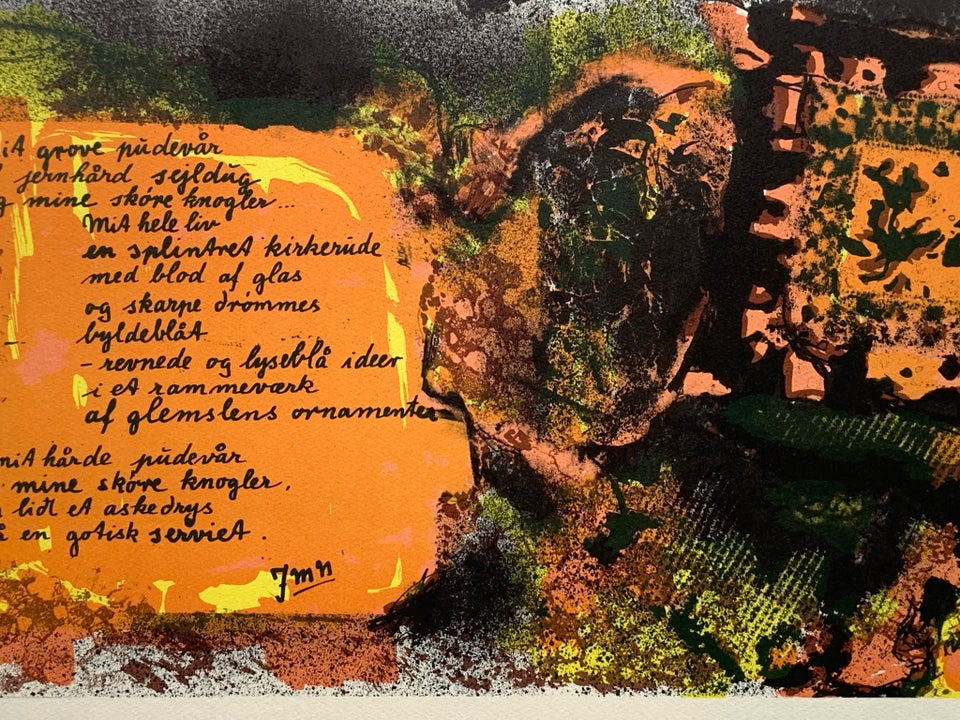 grove pudevår
jernhård sejldug
mine skøre knogler...
Mit hele liv
en splintret kirkerude
med blod af glas
og skarpe drømmes
byldeblåt
- revnede og lyseblå ideer
i et rammeværk
af glemslens ornamenter
hårde pudevår
mine skøre knogler,
lidt et askedrys
en gotisk serviet.
JMN